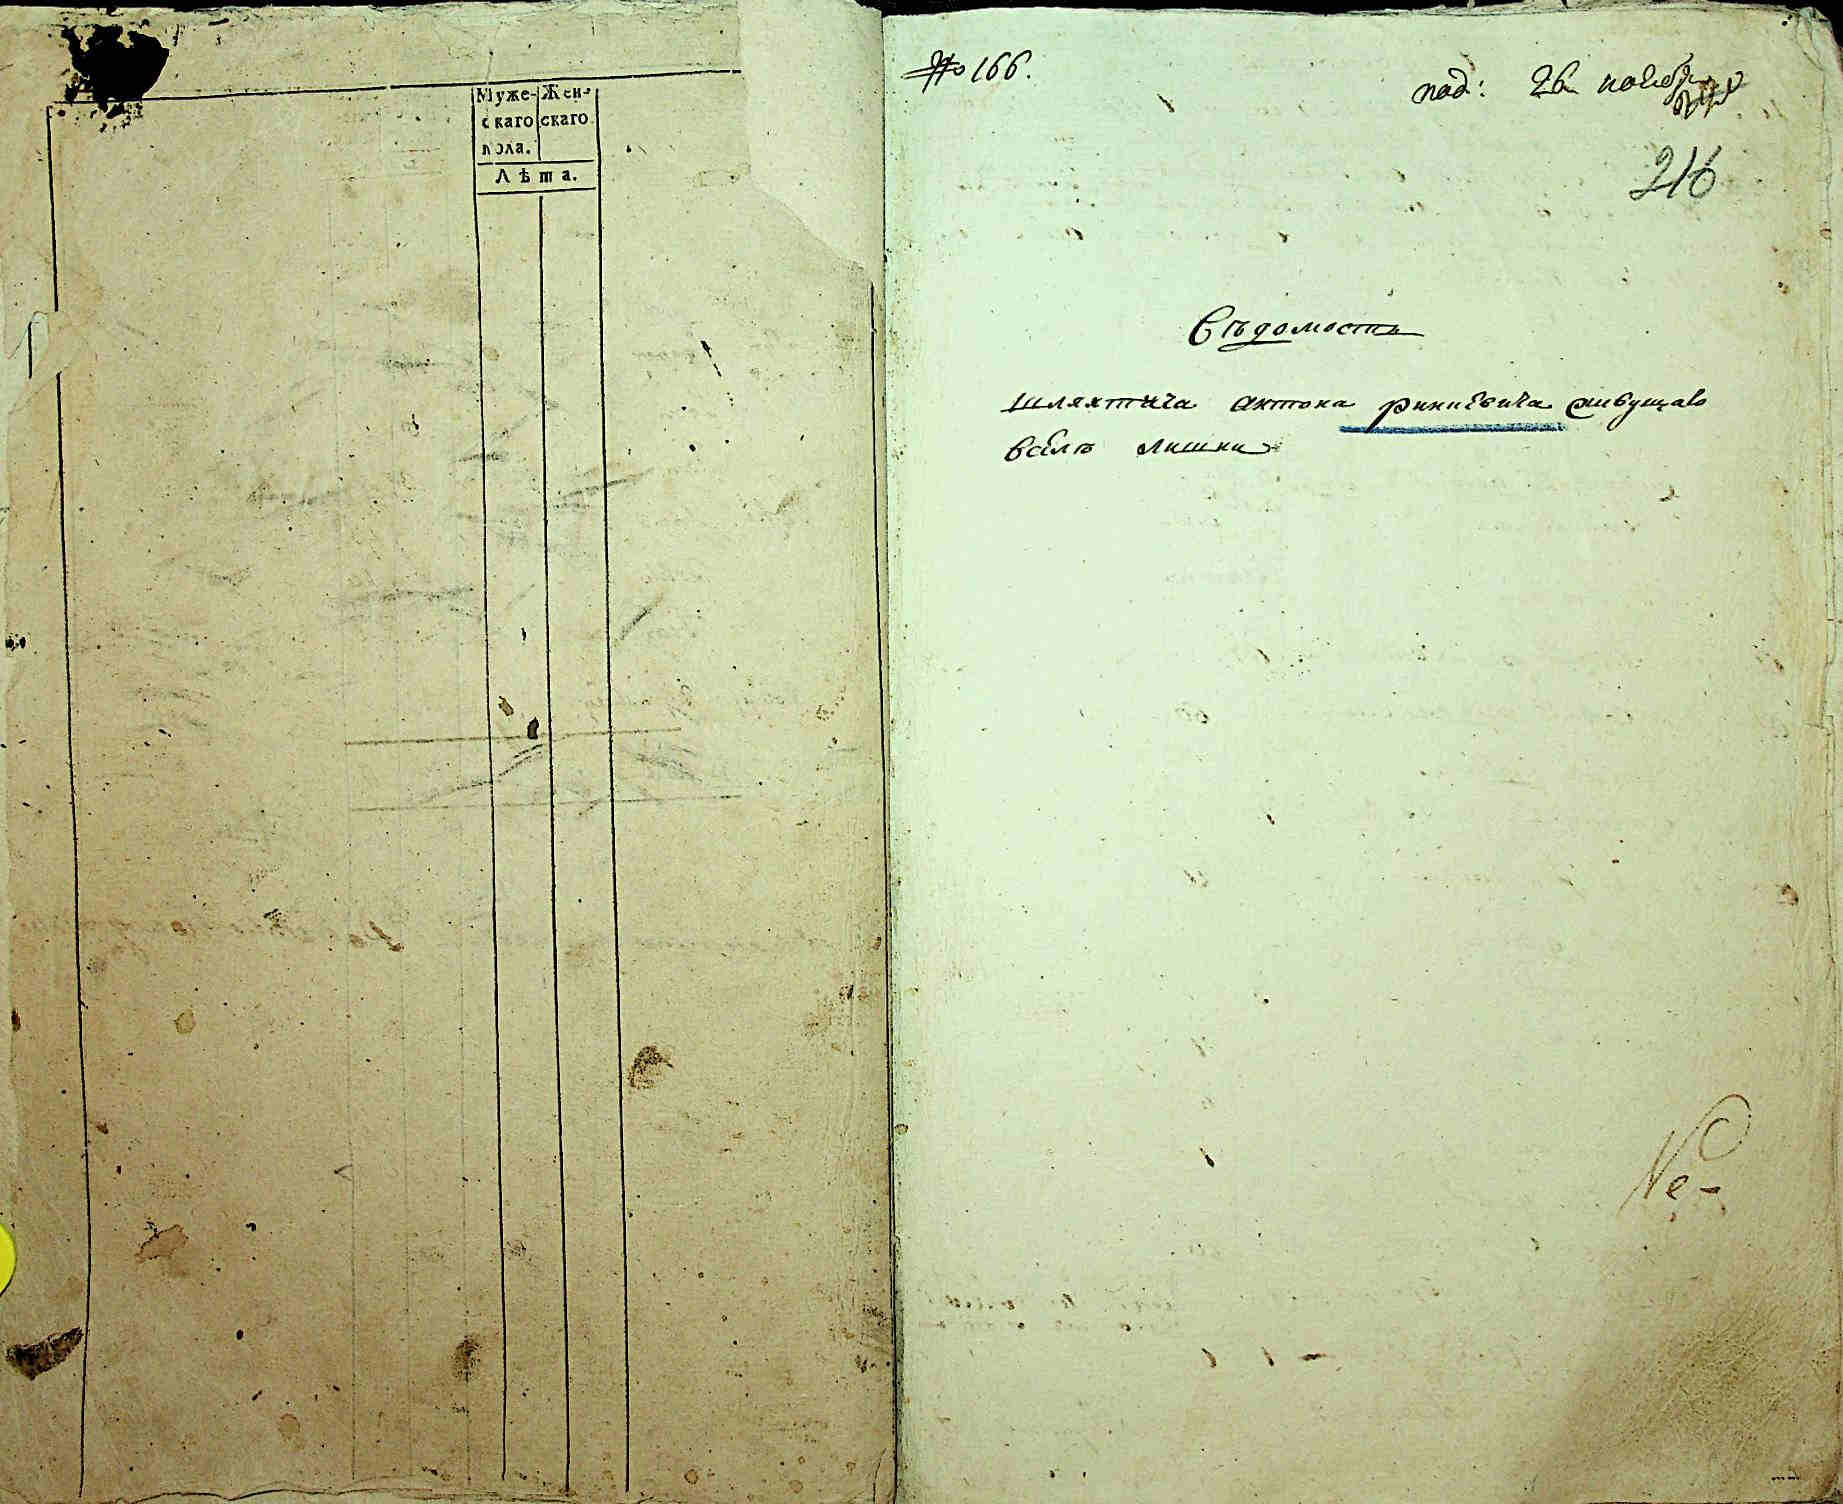 Муже- Жен-
скаго скаго
пола.
Лѣта.
№ 166.
под: 26 ноября
216
Вѣдомость
шляхтича антона ринкевича живущаго
въселѣ лишки